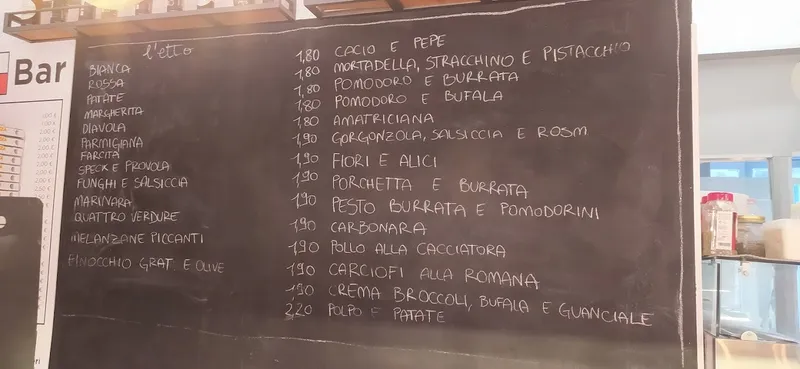 Bar
l'etto
BIANCA
ROSSA
PATATE
MARGHERITA
DIAVOLA
PARMIGIANA
FARCITA
SPECK E PROVOLA
FUNGHI E SALSICCIA
MARINARA
QUATTRO VERDURE
MELANZANE PICCANTI
FINOCCHIO GRAT E OLIVE
1,80 CACIO E PEPE
1,80 MORTADELLA, STRACCHINO E PISTACCHIO
1,80 POMODORO E BURRATA
1,80 POMODORO E BUFALA
1,80 AMATRICIANA
1,90 GORGONZOLA, SALSICCIA E ROSM
1,90 FIORI E ALICI
1,90 PORCHETTA E BURRATA
1,90 PESTO BURRATA E POMODORINI
1,90 CARBONARA
1,90 POLLO ALLA CACCIATORA
1,90 CARCIOFI ALLA ROMANA
1,90 CREMA BROCCOLI, BUFALA E GUANCIALE
2,20 POLPO E PATATE